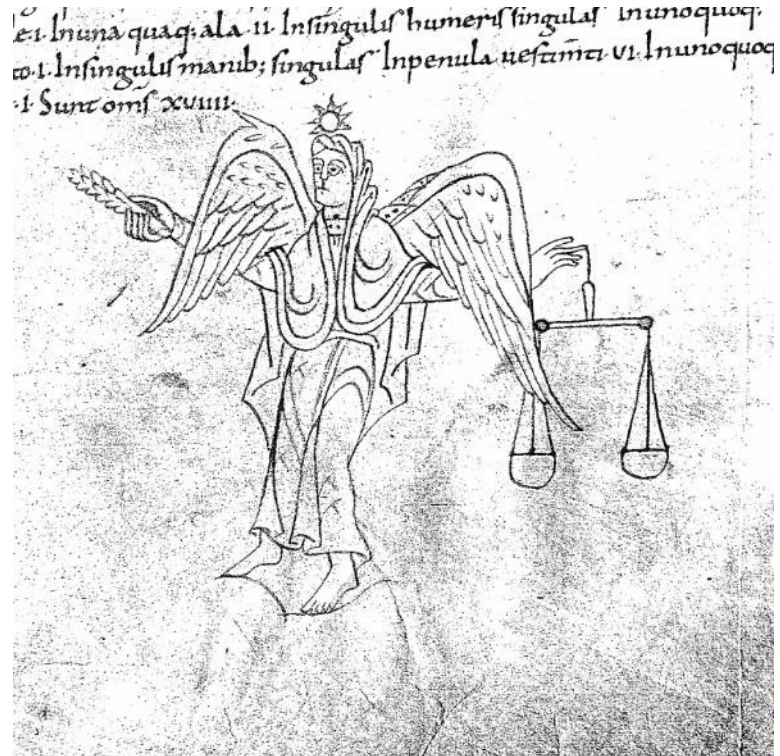 e·1· In una quaq; ala ·11· In singulis humeris singulas In uno quoq;
to·1· In singulis manib; singulas In penula uestim̄ti ·VI· In uno quoq
·1· Sunt om̄s XVIIII·